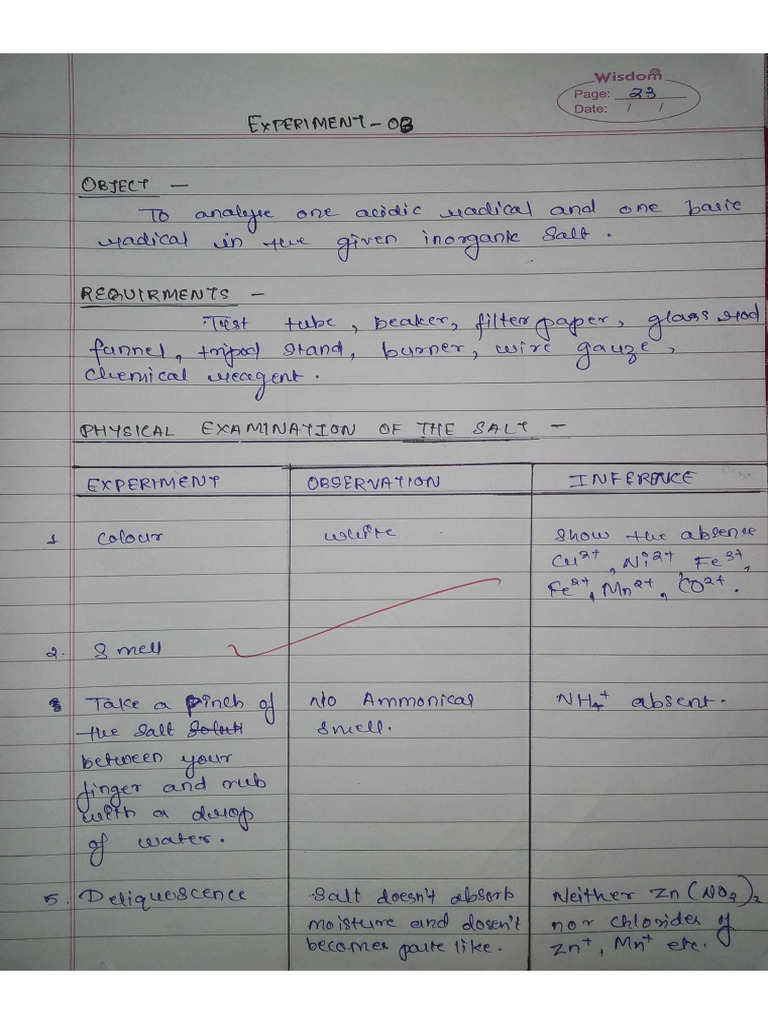 Wisdom
Page: 23
Date: / /
EXPERIMENT - 08
OBJECT -
To analyse one acidic radical and one basic
radical in the given inorganic salt.
REQUIRMENTS -
Test tube, beaker, filter paper, glass rod
funnel, tripod stand, burner, wire gauze,
chemical reagent.
PHYSICAL EXAMINATION OF THE SALT -
EXPERIMENT OBSERVATION INFERENCE
1 Colour White Show the absence
Cu2+, Ni2+, Fe3+,
Fe2+, Mn2+, CO2+.
2. Smell
Take a pinch of No Ammonical NH4+ absent.
the salt smell.
between your
finger and rub
with a drop
of water.
5. Deliquescence Salt doesn't absorb Neither Zn(NO3)2
moisture and dosen't nor chlorides of
becomes paste like. Zn+, Mn+ etc.